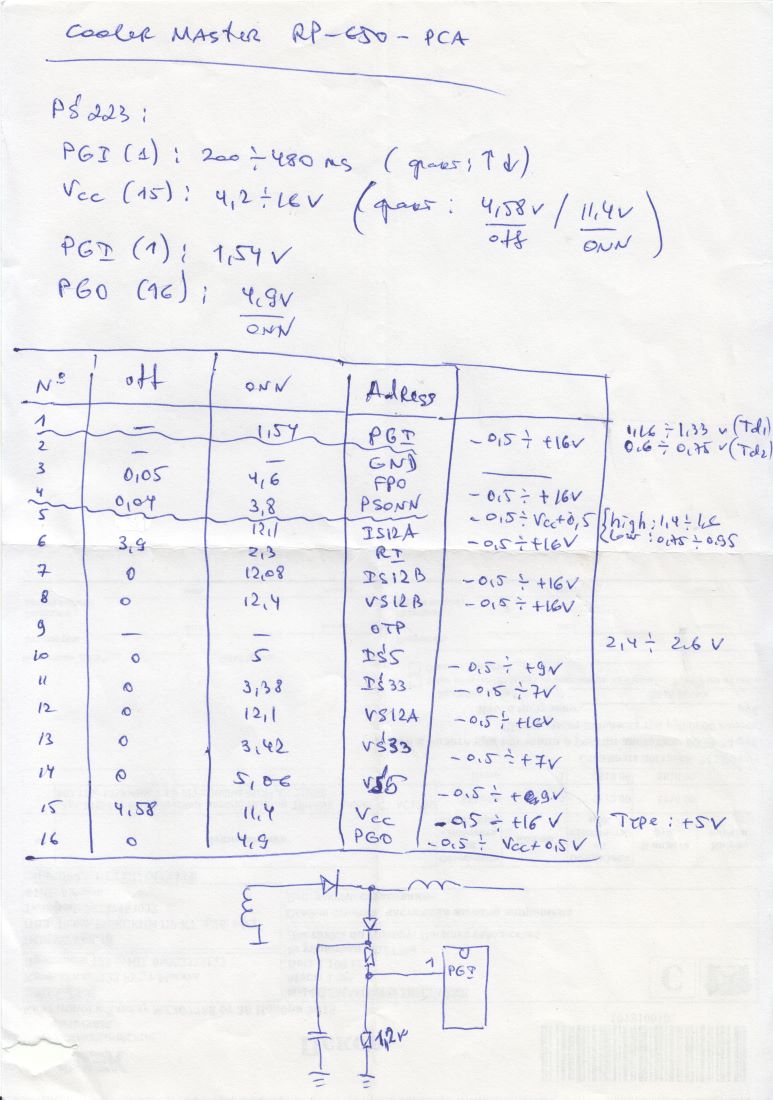 Cooler Master RP-650-PCA
PS223:
PGI (1) : 200÷480 ms (факт: ↑↓)
Vcc (15) : 4,2÷16V (факт: 4,58V / 11,4V)
off ONN
PGI (1) : 1,54V
PGO (16) : 4,9V
ONN
Nº off ONN Adress
1 — 1,54 PGI -0,5÷+16V 1,16÷1,33 V (Td1)
2 — — GND 0.6÷0,75 V (Td2)
3 0,05 4,6 FPO -0,5÷+16V
4 0,04 3,8 PSONN -0,5÷Vcc+0,5 {high: 1,4÷1,6
5 12,1 IS12A -0,5÷+16V low: 0,75÷0,95
6 3,9 2,3 RI
7 0 12,08 IS12B -0,5÷+16V
8 0 12,4 VS12B -0,5÷+16V
9 — — OTP 2,4÷2.6 V
10 0 5 IS5 -0,5÷+9V
11 0 3,38 IS33 -0,5÷7V
12 0 12,1 VS12A -0,5÷+16V
13 0 3,42 VS33 -0,5÷+7V
14 0 5,06 VS5 -0,5÷+9V
15 4,58 11,4 Vcc -0,5÷+16V Type: +5V
16 0 4,9 PGO -0,5÷Vcc+0,5V
1 PGI
1,2k